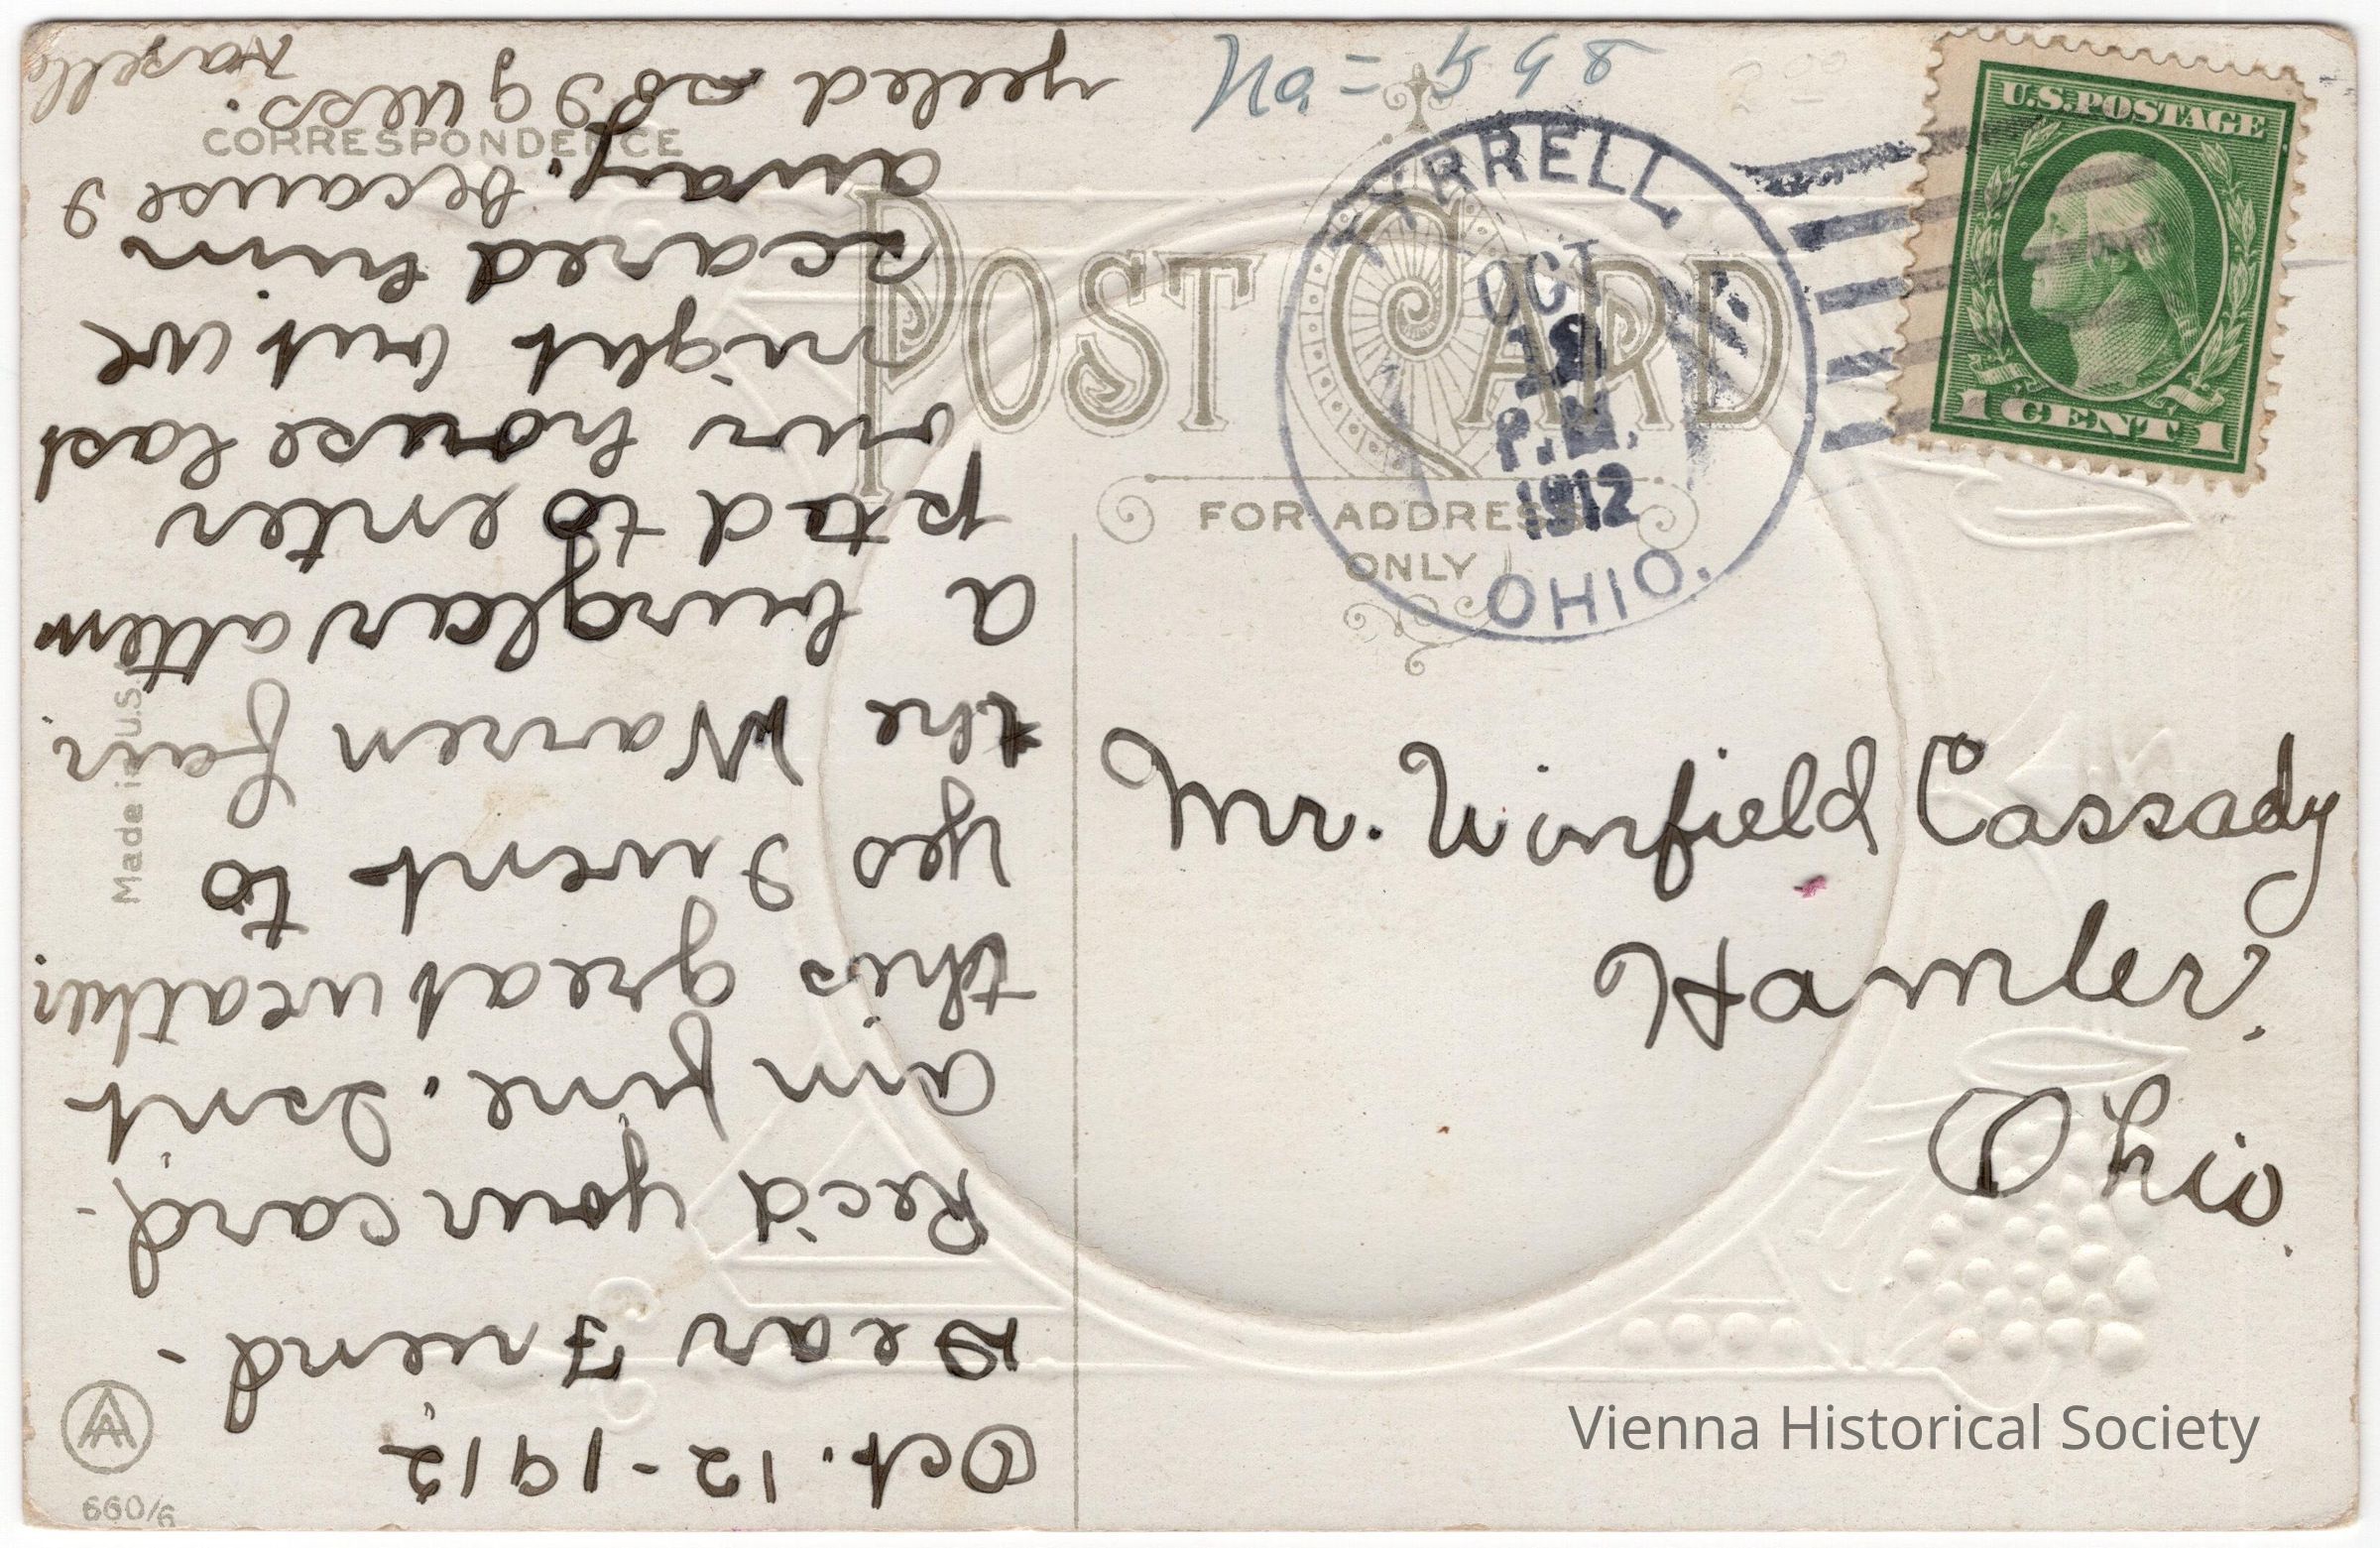 No = 598
U.S. POSTAGE
1 CENT 1
TYRRELL,
OCT
12
P.M.
1912
OHIO.
POST CARD
FOR ADDRESS
ONLY
CORRESPONDENCE
Mr. Winfield Cassady
Hamler.
Ohio.
Oct. 12-1912
Dear Friend-
Rec'd your card.-
am fine. Isn't
this great weather.
yes I went to
the Warren fair.
a burglar attem
pted to enter
our house last
night but we
scared him
away, because I
yeled so I guess.
Nazelle
Made in U.S.
660/6
Vienna Historical Society